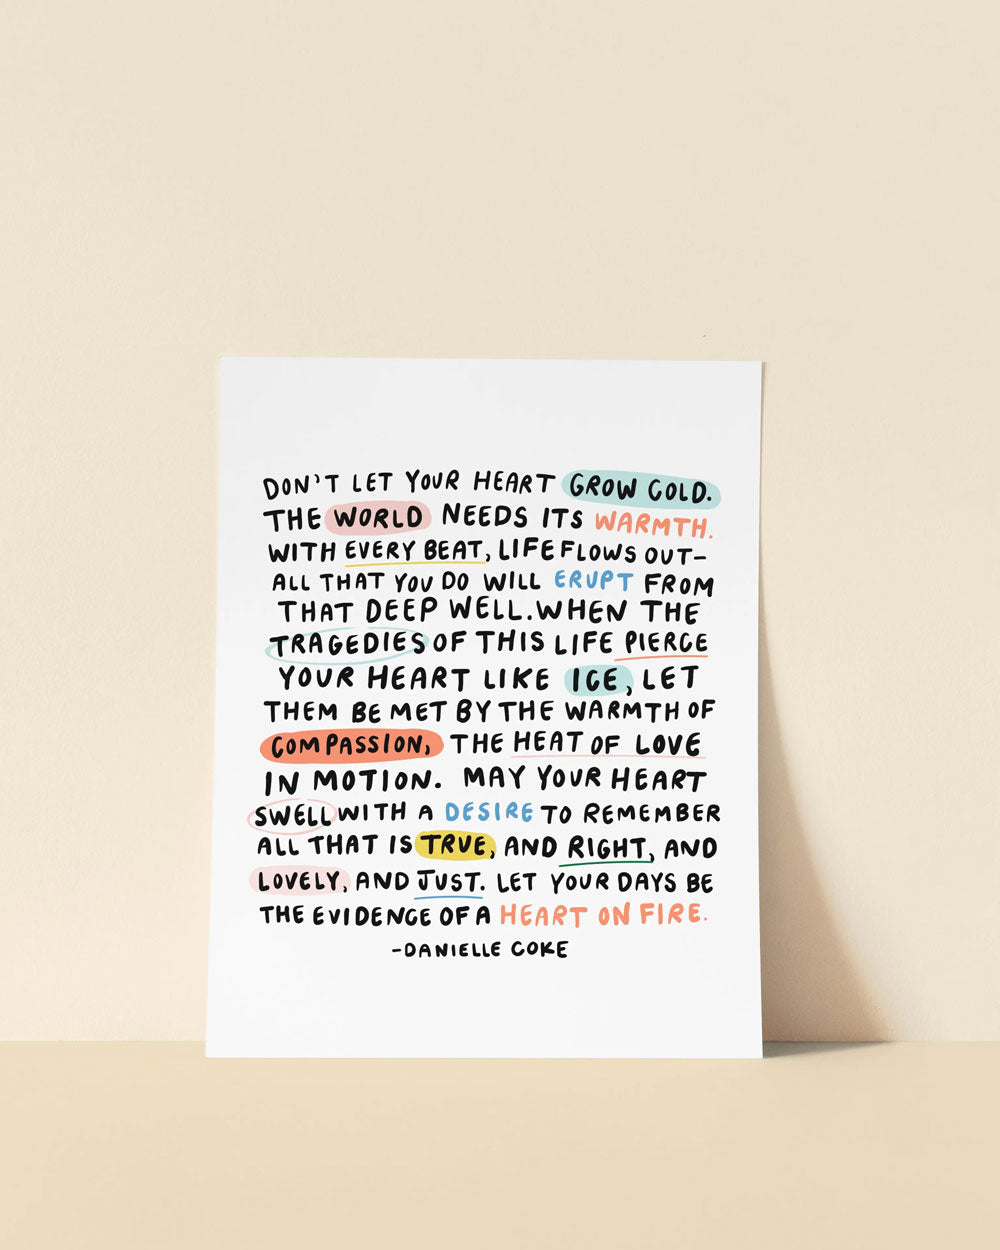 DON'T LET YOUR HEART GROW COLD.
THE WORLD NEEDS ITS WARMTH.
WITH EVERY BEAT, LIFE FLOWS OUT-
ALL THAT YOU DO WILL ERUPT FROM
THAT DEEP WELL. WHEN THE
TRAGEDIES OF THIS LIFE PIERCE
YOUR HEART LIKE ICE, LET
THEM BE MET BY THE WARMTH OF
COMPASSION, THE HEAT OF LOVE
IN MOTION. MAY YOUR HEART
SWELL WITH A DESIRE TO REMEMBER
ALL THAT IS TRUE, AND RIGHT, AND
LOVELY, AND JUST. LET YOUR DAYS BE
THE EVIDENCE OF A HEART ON FIRE.
-DANIELLE COKE